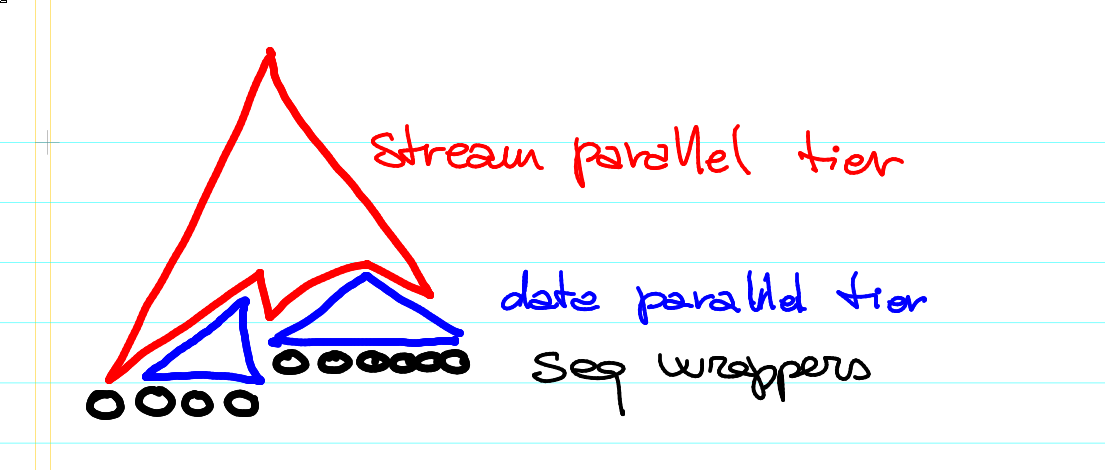 stream parallel tier
data parallel tier
seq wrappers